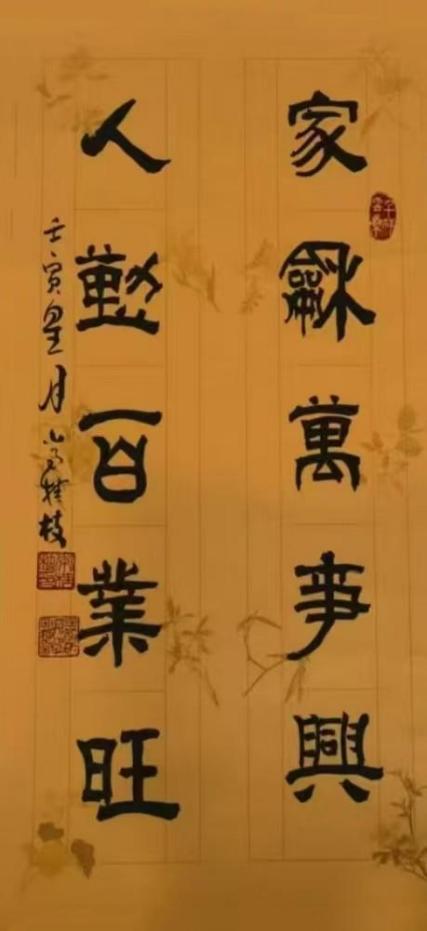 家龢萬事興
人勤百業旺
壬寅皇月高桂枝